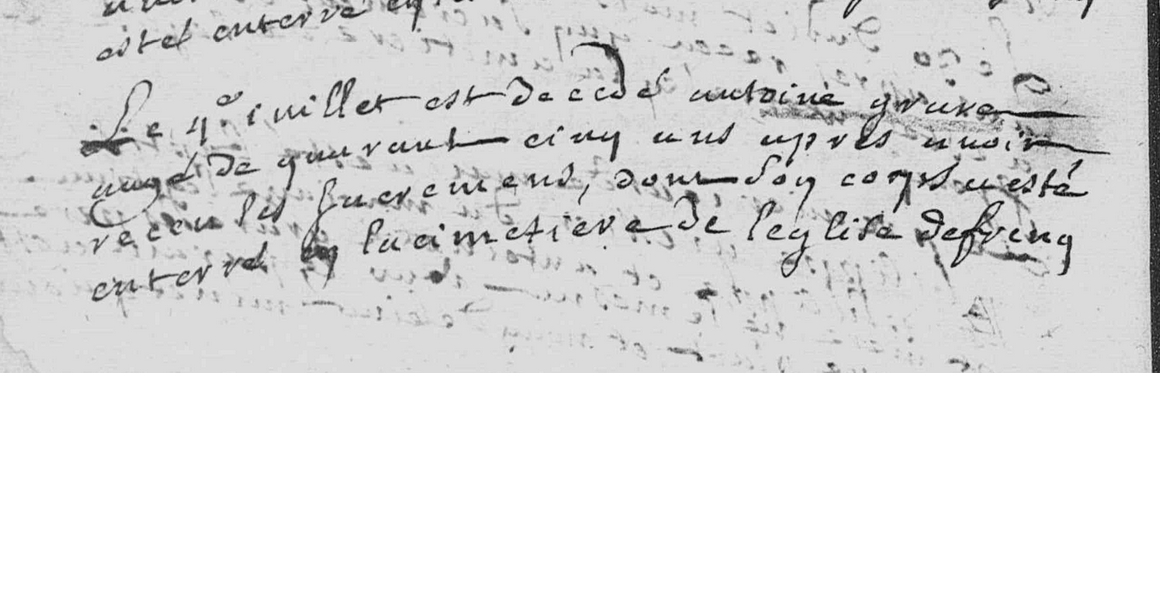 estet enterré
Le 4e iuillet est decedé antoine grave
aagé de quarant cinq ans apres auoir
receu les sacremens, dont son corps a esté
enterré en la cimetiere de leglise defrenq